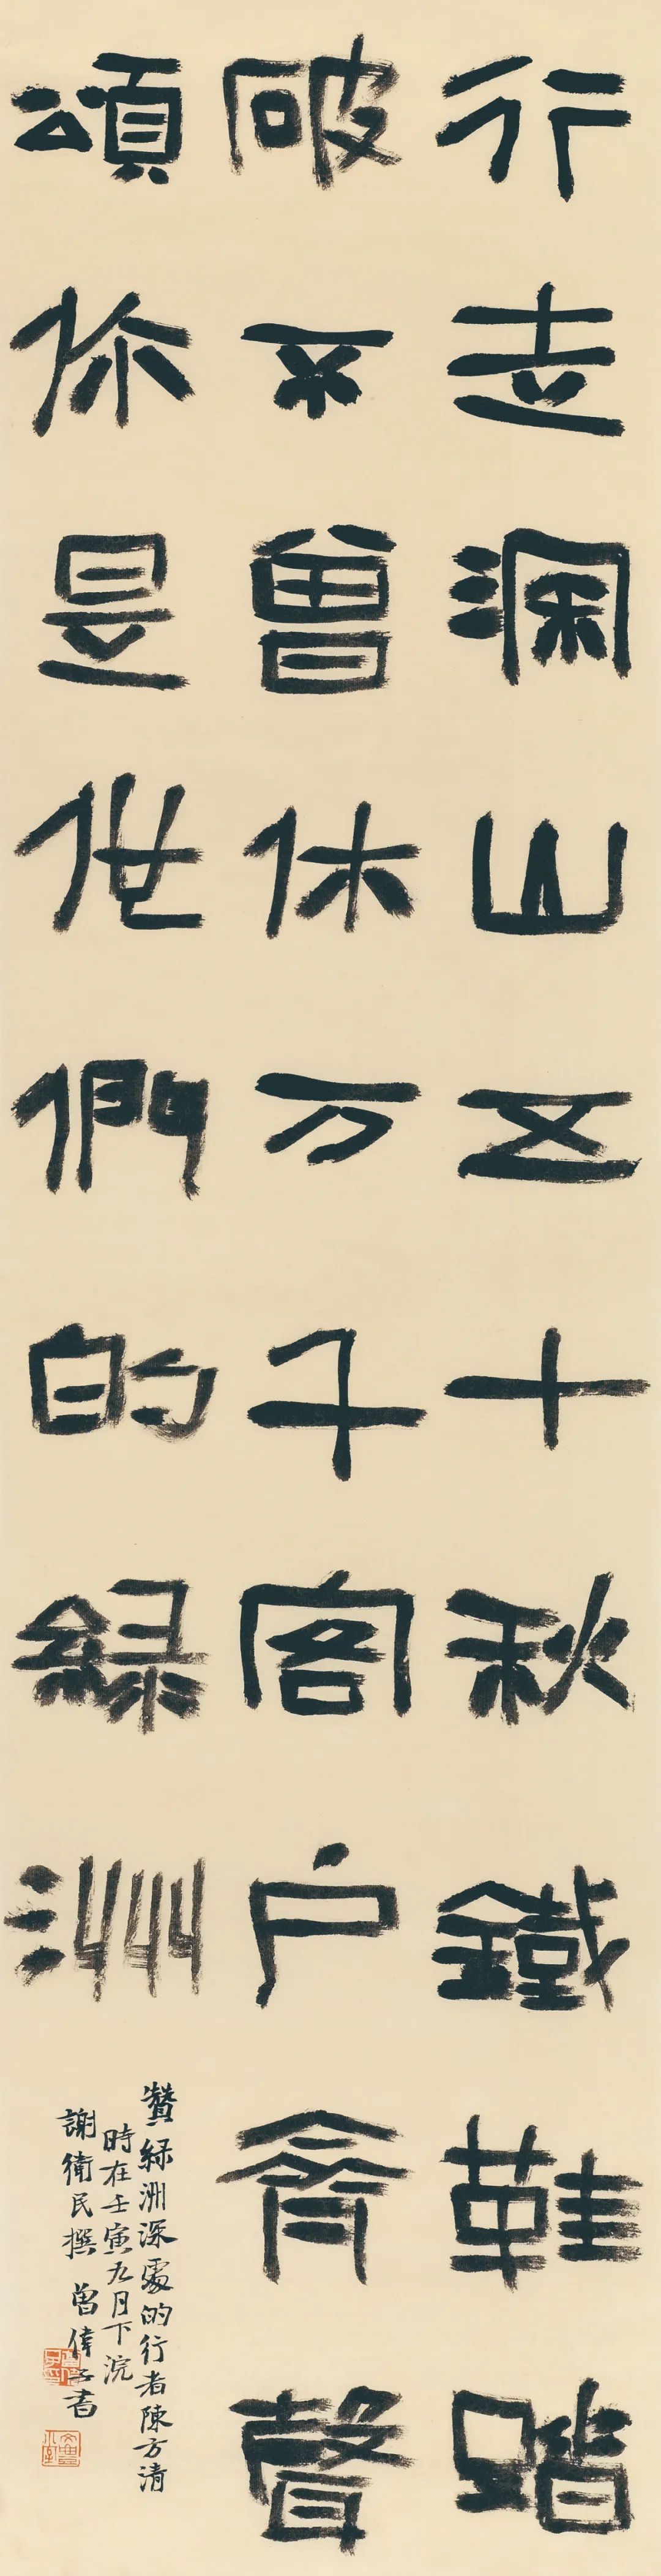 行走深山五十秋鐵鞋踏
破不曾休万千客户齊聲
頌你是他們的緑洲
贊緑洲深處的行者陳方清
時在壬寅九月下浣
謝衛民撰 曾偉書